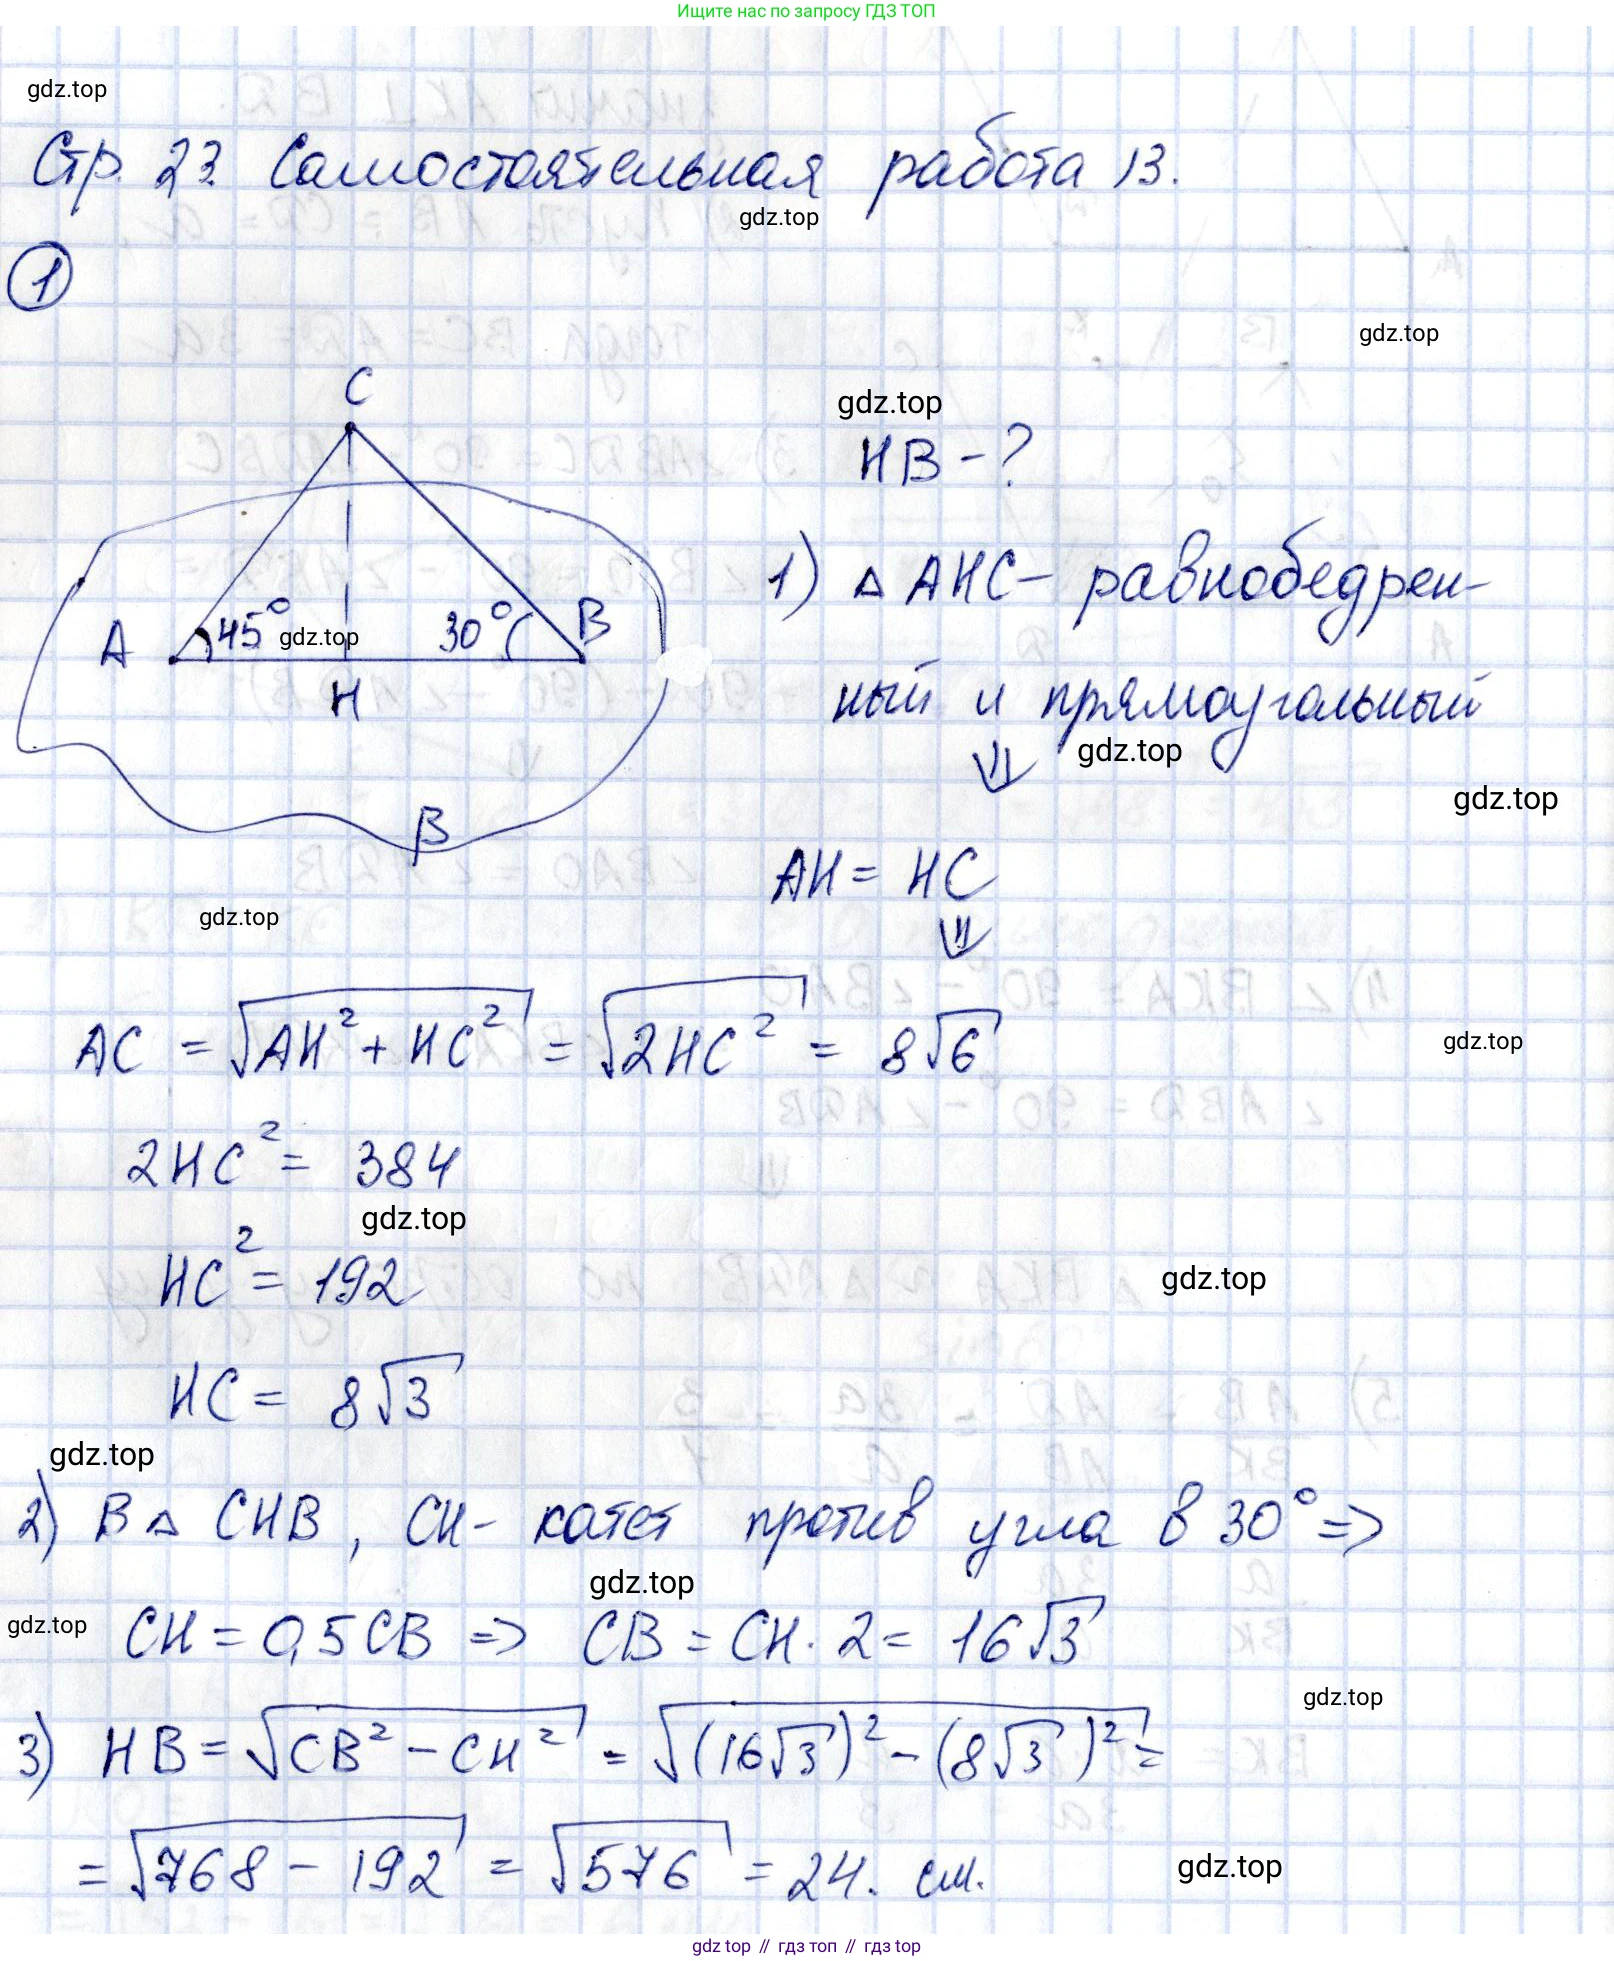 Ищите нас по запросу ГДЗ ТОП
gdz.top
Стр. 23. Самостоятельная работа 13.
gdz.top
1
gdz.top
C
gdz.top
HB - ?
1) △ AHC - равнобедрен-
A 45° gdz.top 30° B
H
ный и прямоугольный
⇓ gdz.top
gdz.top
β
AH = HC
⇓
gdz.top
AC = √AH² + HC² = √2HC² = 8√6
gdz.top
2HC² = 384
gdz.top
HC² = 192
gdz.top
HC = 8√3
gdz.top
2) В △ CHB, CH - катет против угла в 30° =>
gdz.top
gdz.top
CH = 0,5CB => CB = CH · 2 = 16√3
gdz.top
3) HB = √CB² - CH² = √(16√3)² - (8√3)² =
= √768 - 192 = √576 = 24. см.
gdz.top
gdz top // гдз топ // гдз top